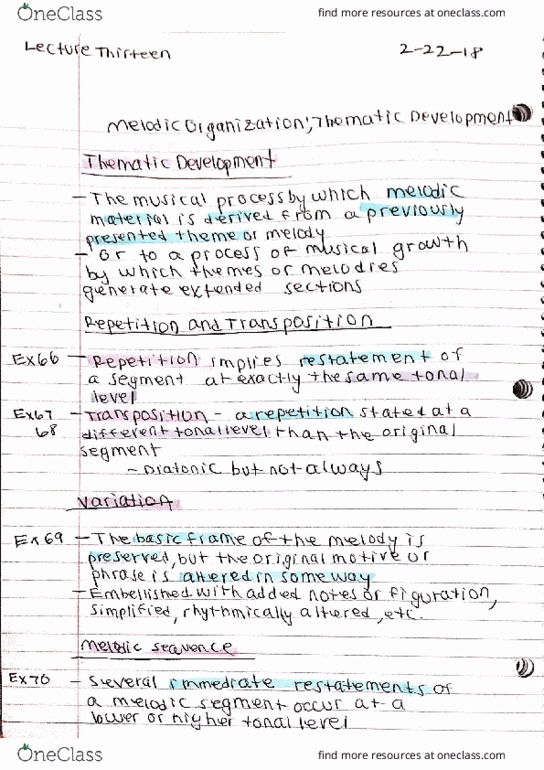 OneClass find more resources at oneclass.com
Lecture Thirteen 2-22-18
Melodic Organization; Thematic Development
Thematic Development
- The musical process by which melodic
material is derived from a previously
presented theme or melody
- or to a process of musical growth
by which themes or melodies
generate extended sections
Repetition and Transposition
Ex66 - Repetition implies restatement of
a segment at exactly the same tonal
level
Ex67 - Transposition - a repetition stated at a
68 different tonal level than the original
segment
- Diatonic but not always
Variation
Ex69 - The basic frame of the melody is
preserved, but the original motive or
phrase is altered in some way
- Embellished with added notes or figuration,
simplified, rhythmically altered, etc.
Melodic sequence
Ex70 - Several immediate restatements of
a melodic segment occur at a
lower or higher tonal level
OneClass find more resources at oneclass.com